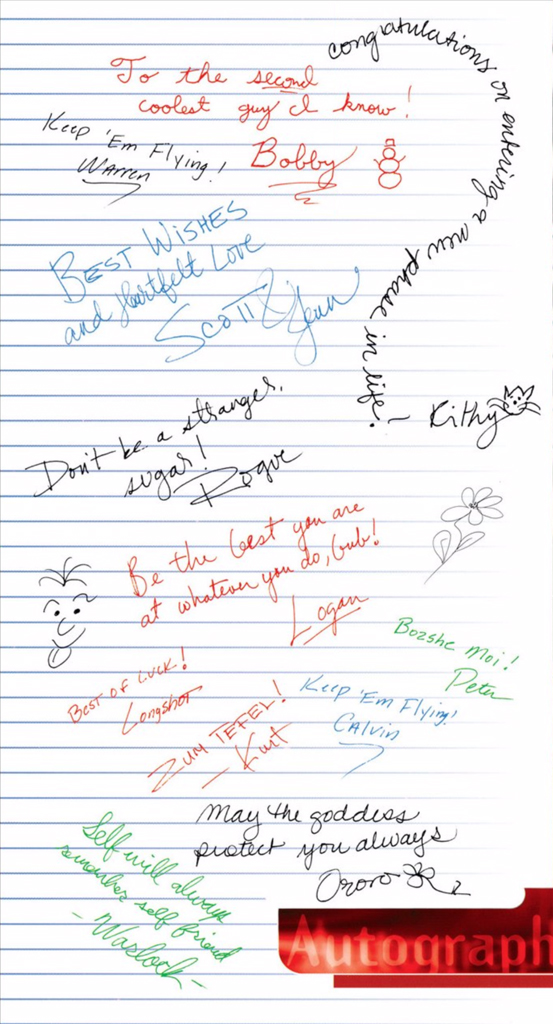 congratulations on entering a new phase in life. –
Kithy
To the second
coolest guy I know!
Bobby
Keep 'Em Flying!
Warren
Best Wishes
and Heartfelt Love
Scott & Jean
Don't be a stranger,
sugar!
Rogue
Be the best you are
at whatever you do, bub!
Logan
Bozshe Moi!
Peter
Best of Luck!
Longshot
Zum TEFEL!
– Kurt
Keep 'Em Flying!
Calvin
May the goddess
protect you always
Ororo
Self will always
remember self friend
– Warlock –
Autograph